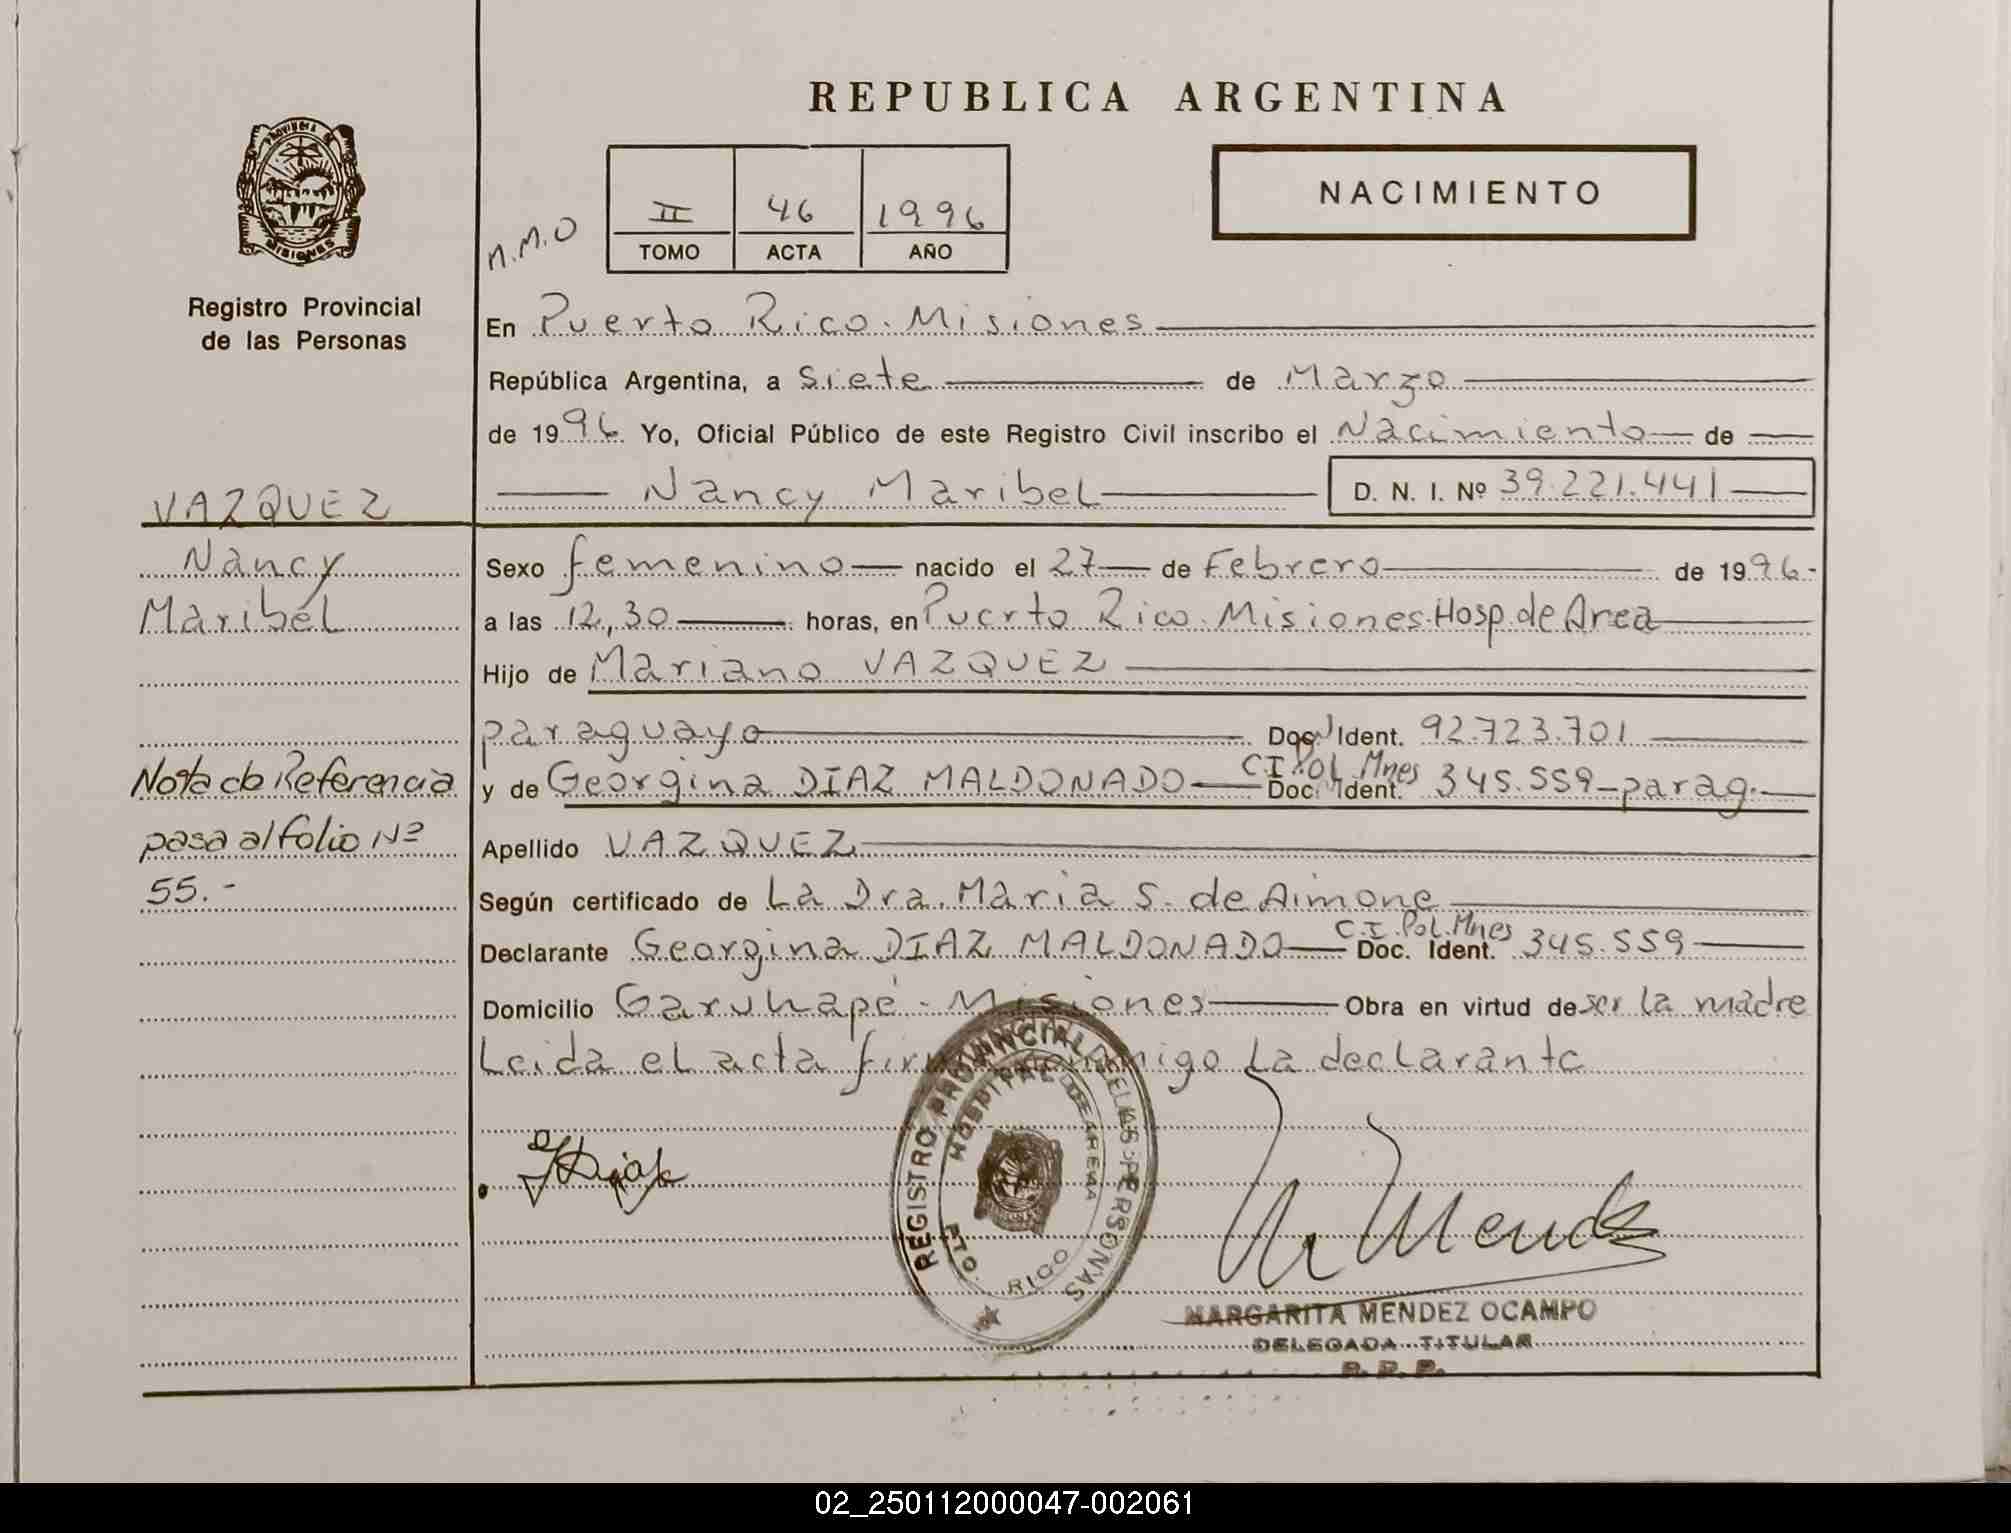 REPUBLICA ARGENTINA
PROVINCIA DE
MISIONES
Registro Provincial
de las Personas
M.M.O
II 46 1996
TOMO ACTA AÑO
NACIMIENTO
En Puerto Rico. Misiones
República Argentina, a Siete de Marzo
de 1996 Yo, Oficial Público de este Registro Civil inscribo el Nacimiento de
Nancy Maribel D. N. I. Nº 39.221.441
VAZQUEZ
Nancy
Maribel
Nota de Referencia
pasa al folio Nº
55.-
Sexo femenino nacido el 27 de Febrero de 1996.
a las 12,30 horas, en Puerto Rico. Misiones. Hosp. de Area
Hijo de Mariano VAZQUEZ
paraguayo Doc. Ident. 92.723.701
C.I. Pol. Mnes
y de Georgina DIAZ MALDONADO Doc. Ident. 345.559-parag.
Apellido VAZQUEZ
Según certificado de La Dra. Maria S. de Aimone
C.I. Pol. Mnes
Declarante Georgina DIAZ MALDONADO Doc. Ident. 345.559
Domicilio Garuhapé - Misiones Obra en virtud de ser la madre
Leida el acta firma conmigo La declarante
REGISTRO PROVINCIAL DE LAS PERSONAS
HOSPITAL DE AREA
PTO. RICO
M Mendez
MARGARITA MENDEZ OCAMPO
DELEGADA TITULAR
R. P. P.
02_250112000047-002061